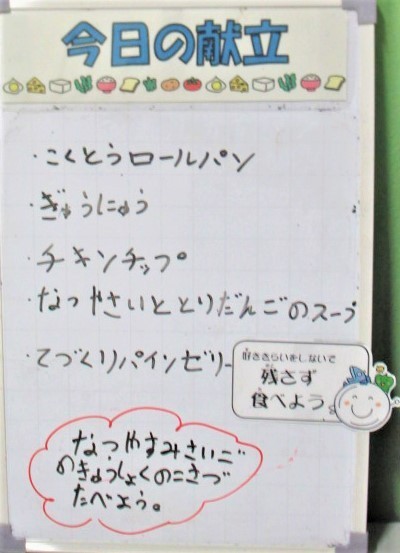 今日の献立
・こくとうロールパン
・ぎゅうにゅう
・チキンチップ
・なつやさいととりだんごのスープ
・てづくりパインゼリー
好ききらいをしないで
残さず
食べよう。
なつやすみさいご
のきゅうしょくのこさづ
たべよう。